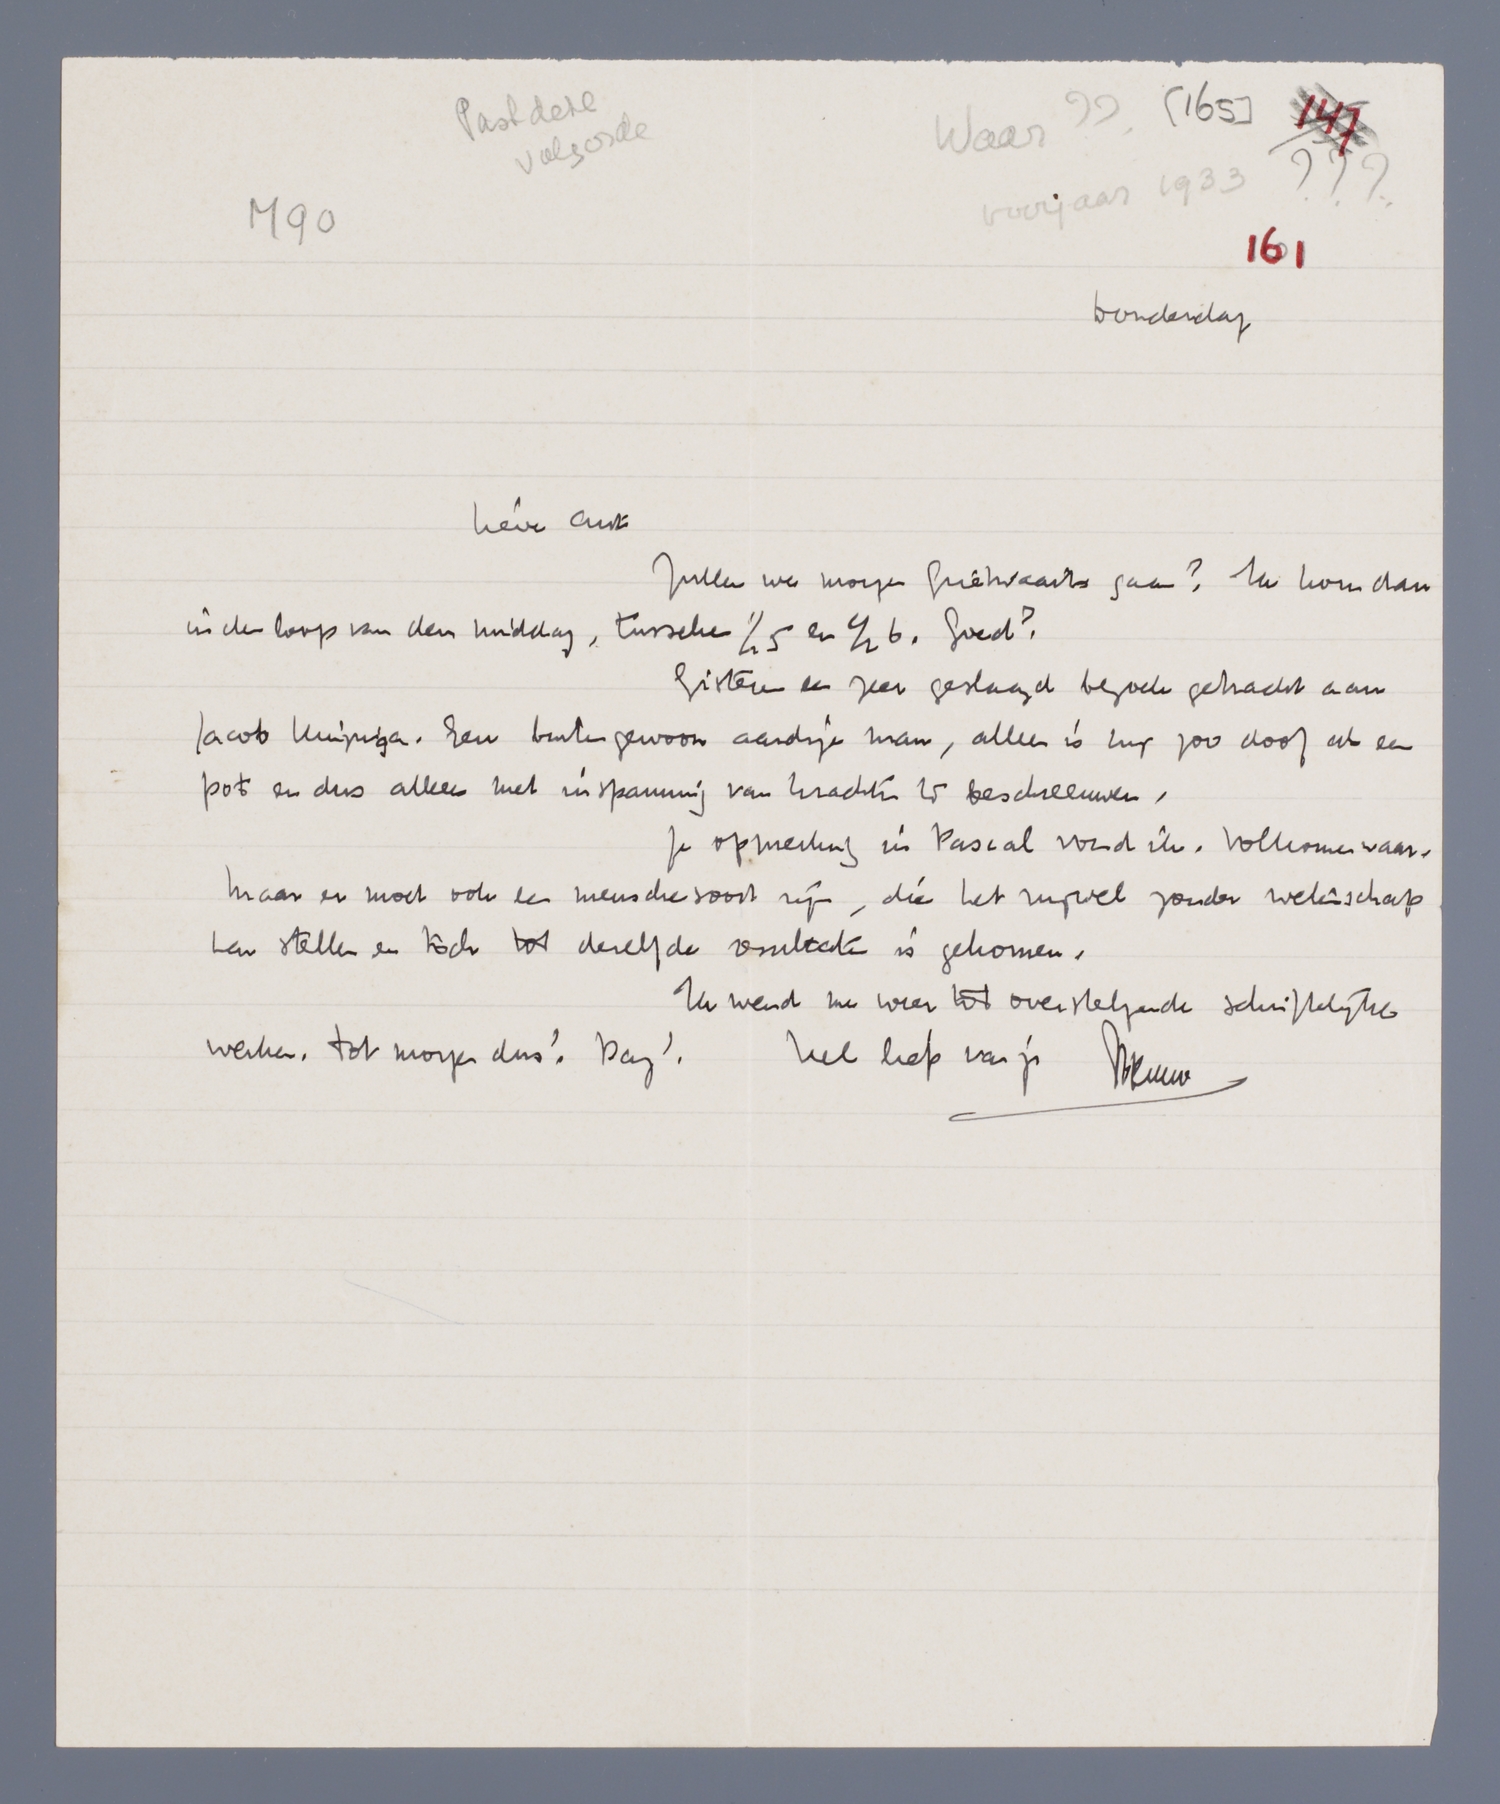 Past deze
volgorde
Waar ??. [165] 147
voorjaar 1933 ???
M90
161
Donderdag
Lieve Ant
Zullen we morgen Grietwaarts gaan? Ik kom dan
in den loop van den middag, tusschen ½5 en ½6. Goed?
Gisteren een zeer geslaagd bezoek gebracht aan
Jacob. Een buitengewoon aardige man, alleen is hij zoo doof als een
pot en dus alleen met inspanning van krachten te beschreeuwen.
Je opmerking in Pascal vond ik. Volkomen waar.
Maar er moet ook een menschensoort zijn, die het zijwel zonder wetenschap
kan stellen en toch tot dezelfde resultaten is gekomen.
Ik wend me weer tot overstelpende schriftelijke
werken. Tot morgen dus! Dag!. Veel liefs van je